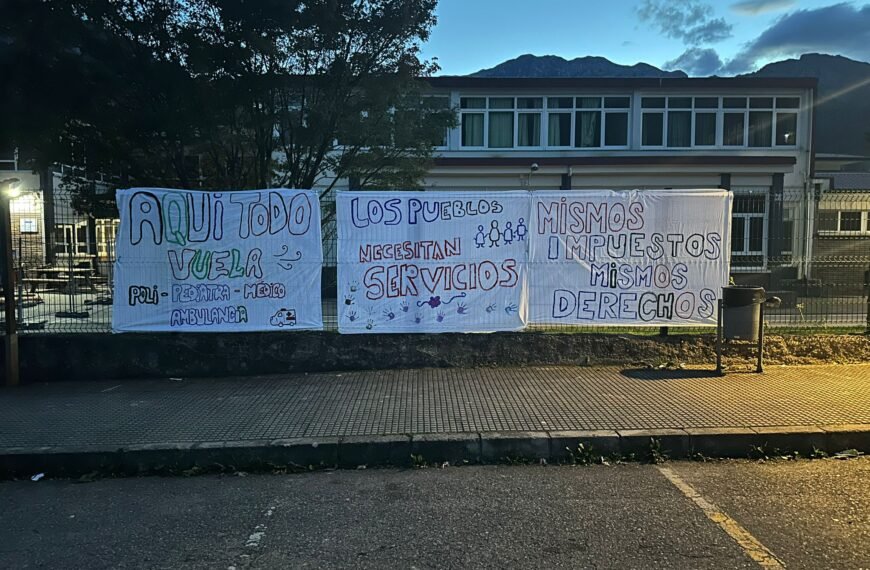 AQUI TODO
VUELA
POLI - PEDIATRA - MEDICO
AMBULANCIA
LOS PUEBLOS
NECESITAN
SERVICIOS
MISMOS
IMPUESTOS
MISMOS
DERECHOS